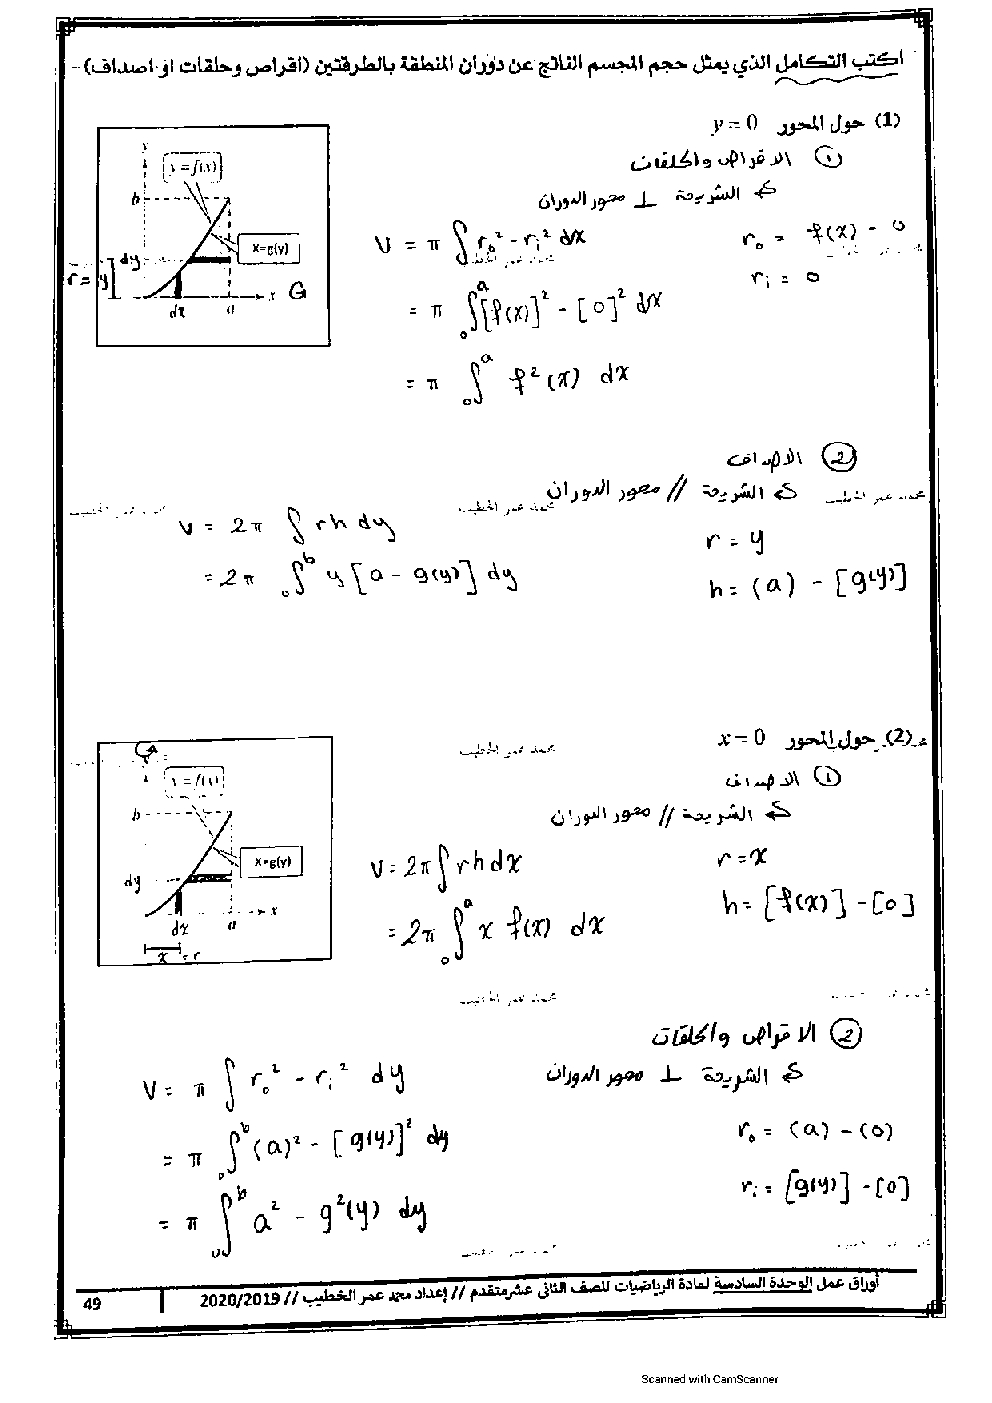 اكتب التكامل الذي يمثل حجم المجسم الناتج عن دوران المنطقة بالطرقتين (اقراص وحلقات او اصداف)
(1) حول المحور y = 0
① الاقراص والحلقات
الشريحة ⊥ محور الدوران
y = f(x)
x=g(y)
b
dy
r = y
dx
a
x
G
V = π ∫ r₀² - rᵢ² dx
r₀ = f(x) - 0
rᵢ = 0
= π ∫₀ᵃ [f(x)]² - [0]² dx
= π ∫₀ᵃ f²(x) dx
② الاصداف
الشريحة // محور الدوران
محمد عمر الخطيب
V = 2π ∫ r h dy
r = y
= 2π ∫₀ᵇ y [a - g(y)] dy
h = (a) - [g(y)]
(2) حول المحور x = 0
محمد عمر الخطيب
① الاصداف
الشريحة // محور الدوران
y = f(x)
x=g(y)
b
dy
dx
a
x
x = r
V = 2π ∫ r h dx
r = x
h = [f(x)] - [0]
= 2π ∫₀ᵃ x f(x) dx
محمد عمر الخطيب
② الاقراص والحلقات
الشريحة ⊥ محور الدوران
V = π ∫ r₀² - rᵢ² dy
r₀ = (a) - (0)
= π ∫₀ᵇ (a)² - [g(y)]² dy
rᵢ = [g(y)] - [0]
= π ∫₀ᵇ a² - g²(y) dy
أوراق عمل الوحدة السادسة لمادة الرياضيات للصف الثاني عشر متقدم // إعداد محمد عمر الخطيب // 2020/2019
49
Scanned with CamScanner